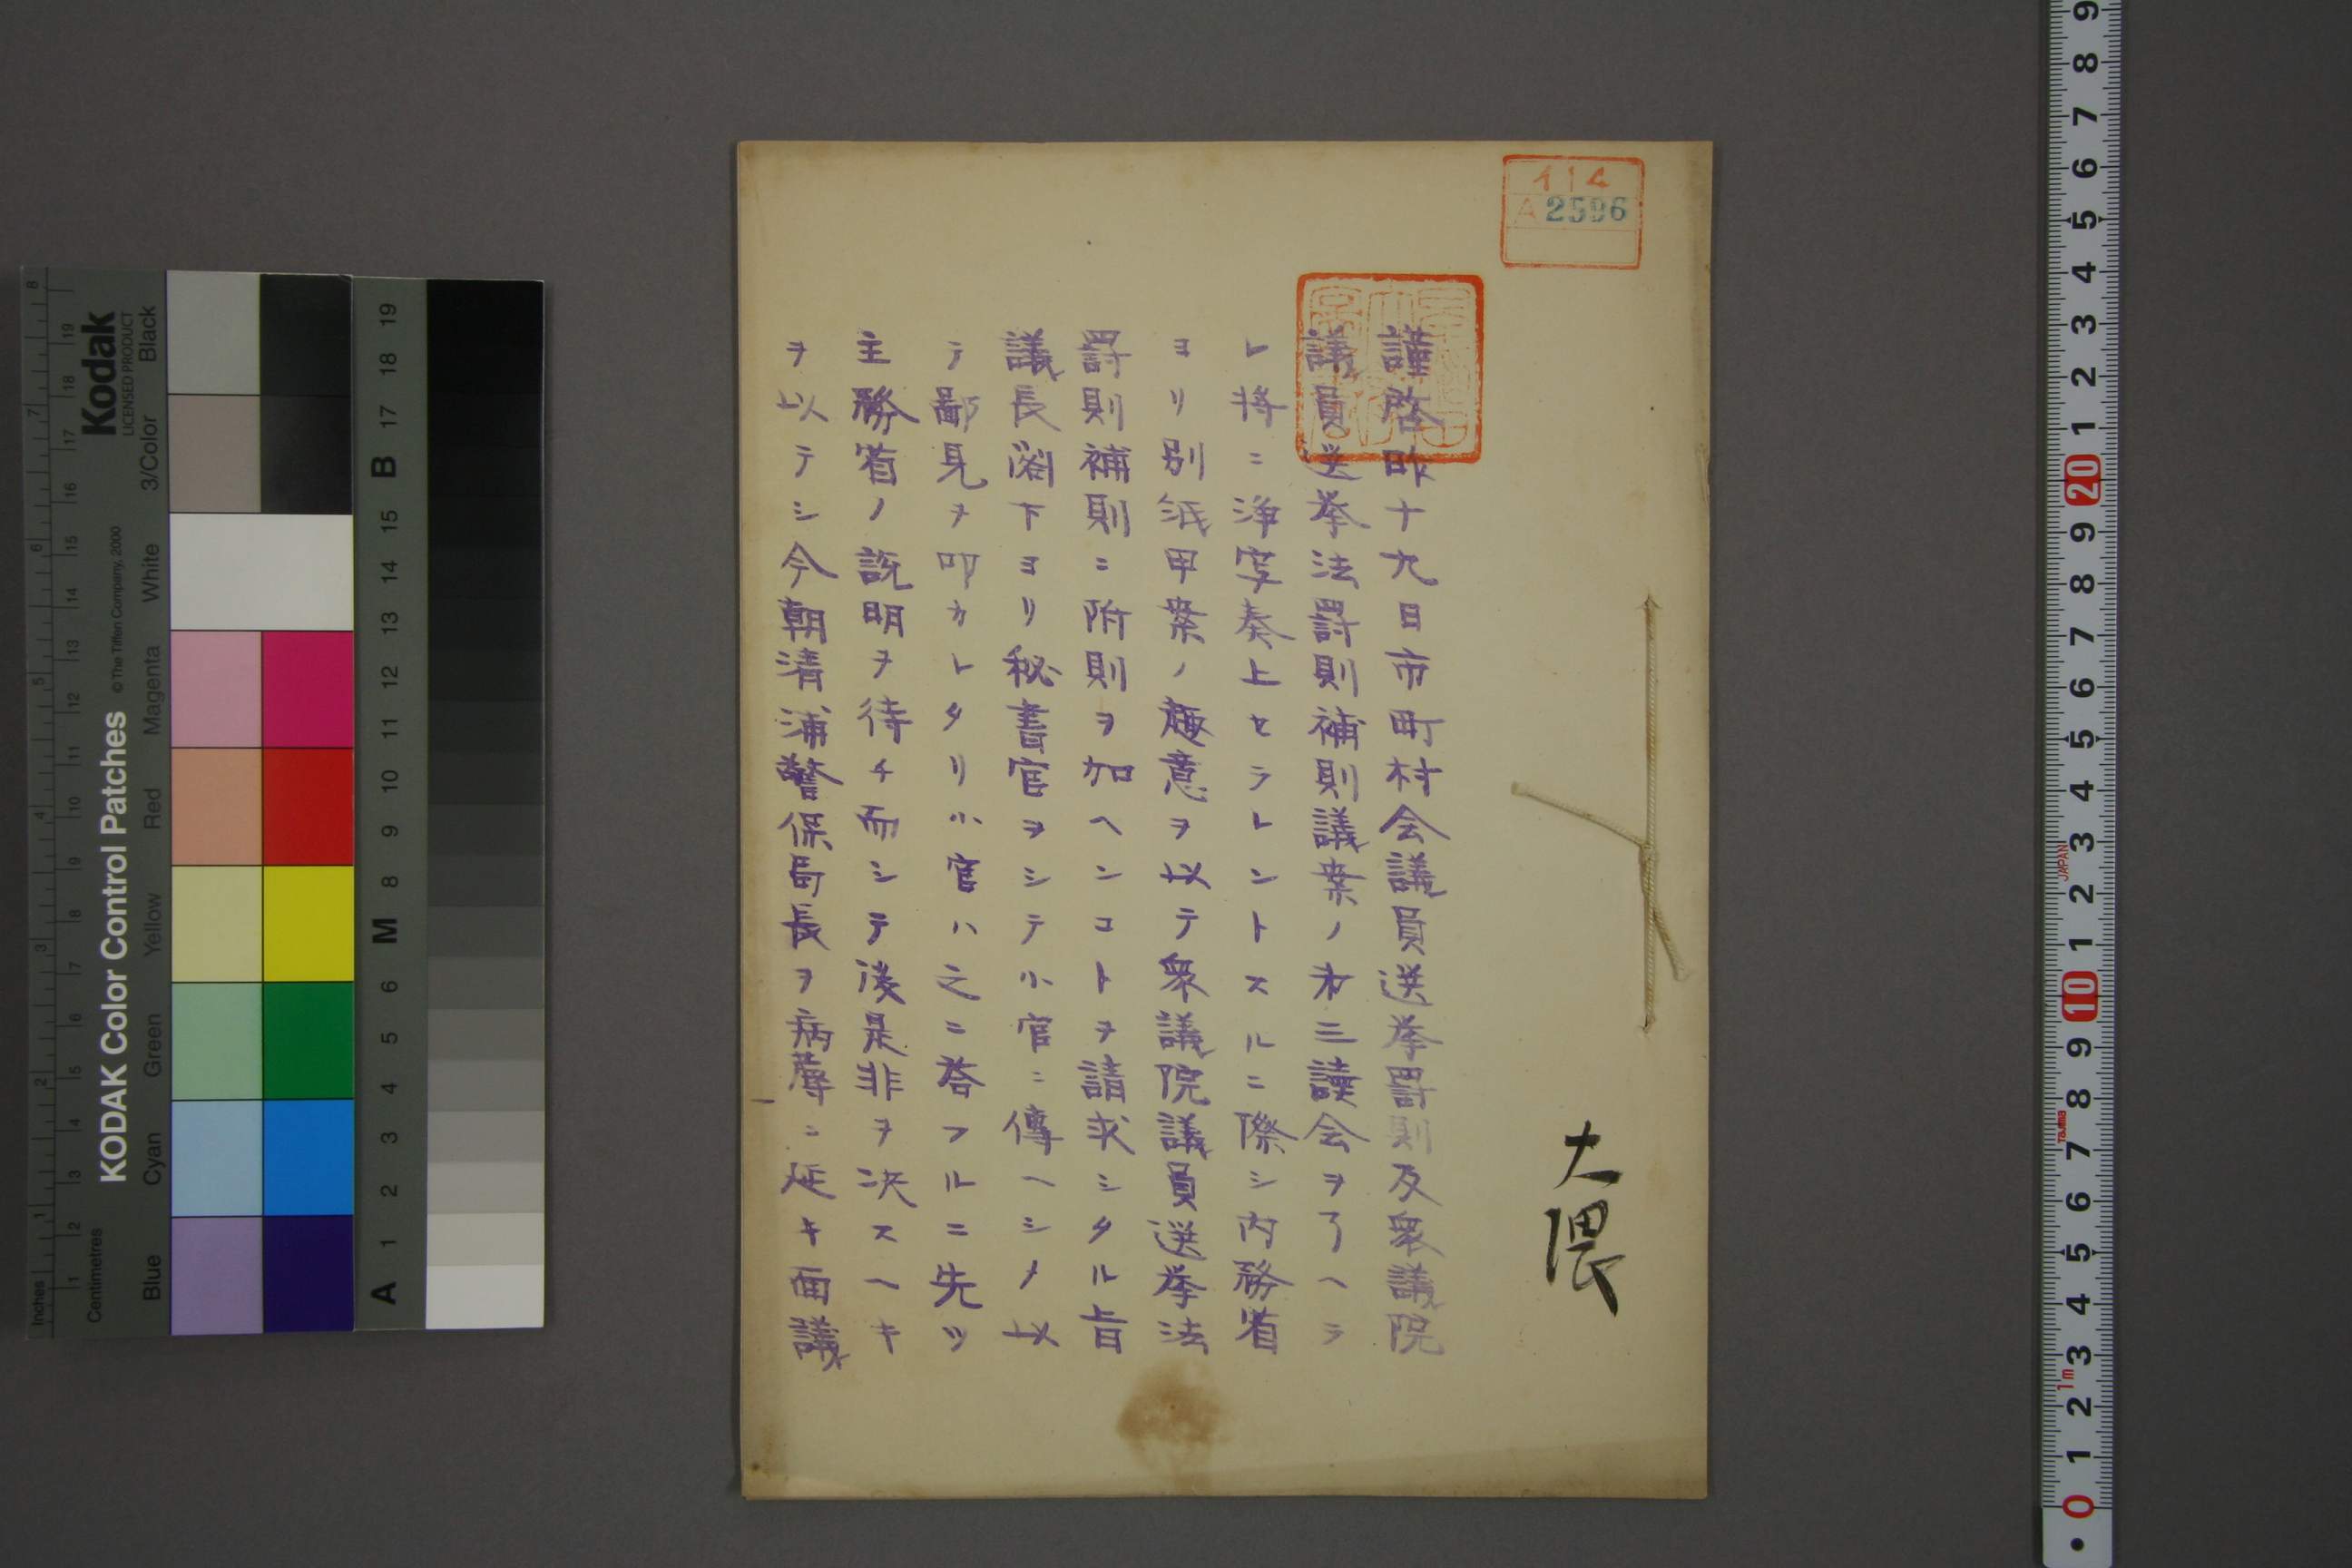 大隈
謹啓昨十九日市町村会議員選挙罰則及衆議院
議員選挙法罰則補則議案ノ第三讀会ヲ了ヘラ
レ将ニ浄寫奏上セラレントスルニ際シ内務省
ヨリ別紙甲案ノ趣意ヲ以テ衆議院議員選挙法
罰則補則ニ附則ヲ加ヘンコトヲ請求シタル旨
議長閣下ヨリ秘書官ヲシテ小官ニ傳ヘシメ以
テ鄙見ヲ叩カレタリ小官ハ之ニ答フルニ先ツ
主務省ノ説明ヲ待チ而シテ後是非ヲ決スヘキ
ヲ以テシ今朝清浦警保局長ヲ病蓐ニ延キ面議
114
A 2596
KODAK Color Control Patches
© The Tiffen Company, 2000
Kodak
LICENSED PRODUCT
Inches
Centimetres
Blue
Cyan
Green
Yellow
Red
Magenta
White
3/Color
Black
A 1 2 3 4 5 6 M 8 9 10 11 12 13 14 15 B 17 18 19
JAPAN
Tajima
1m